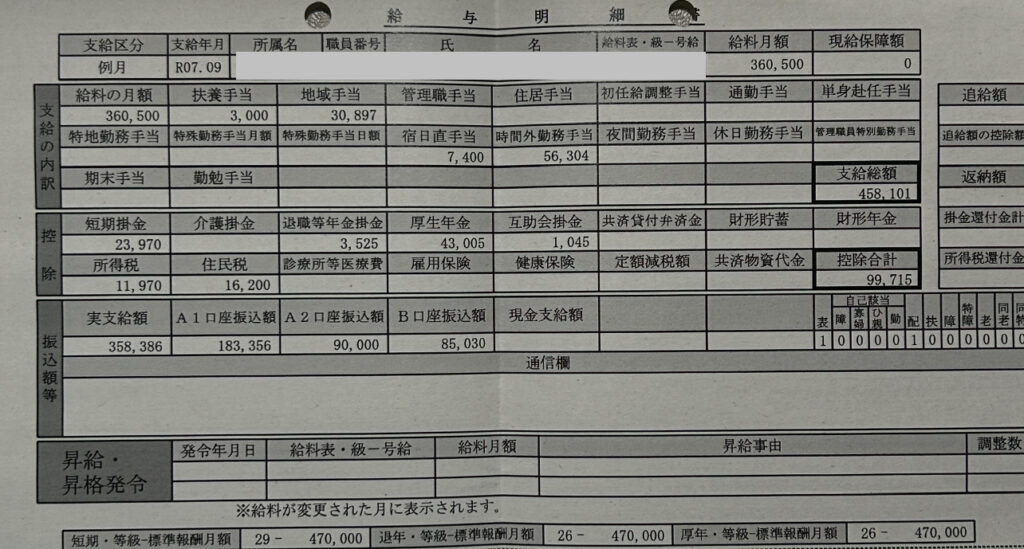 給 与 明 細
支給区分 支給年月 所属名 職員番号 氏 名 給料表・級－号給 給料月額 現給保障額
例月 R07.09 360,500 0
支給の内訳
給料の月額 扶養手当 地域手当 管理職手当 住居手当 初任給調整手当 通勤手当 単身赴任手当 追給額
360,500 3,000 30,897
特地勤務手当 特殊勤務手当月額 特殊勤務手当日額 宿日直手当 時間外勤務手当 夜間勤務手当 休日勤務手当 管理職員特別勤務手当 追給額の控除額
7,400 56,304
期末手当 勤勉手当 支給総額 返納額
458,101
控除
短期掛金 介護掛金 退職等年金掛金 厚生年金 互助会掛金 共済貸付弁済金 財形貯蓄 財形年金 掛金還付金計
23,970 3,525 43,005 1,045
所得税 住民税 診療所等医療費 雇用保険 健康保険 定額減税額 共済物資代金 控除合計 所得税還付金
11,970 16,200 99,715
振込額等
実支給額 A1口座振込額 A2口座振込額 B口座振込額 現金支給額
自己該当
表 障 寡婦 ひ親 勤 配 扶 障 特障 老 同老
358,386 183,356 90,000 85,030 1 0 0 0 0 1 0 0 0 0 0
通信欄
昇給・昇格発令
発令年月日 給料表・級－号給 給料月額 昇給事由 調整数
※給料が変更された月に表示されます。
短期・等級-標準報酬月額 29- 470,000 退年・等級-標準報酬月額 26- 470,000 厚年・等級-標準報酬月額 26- 470,000